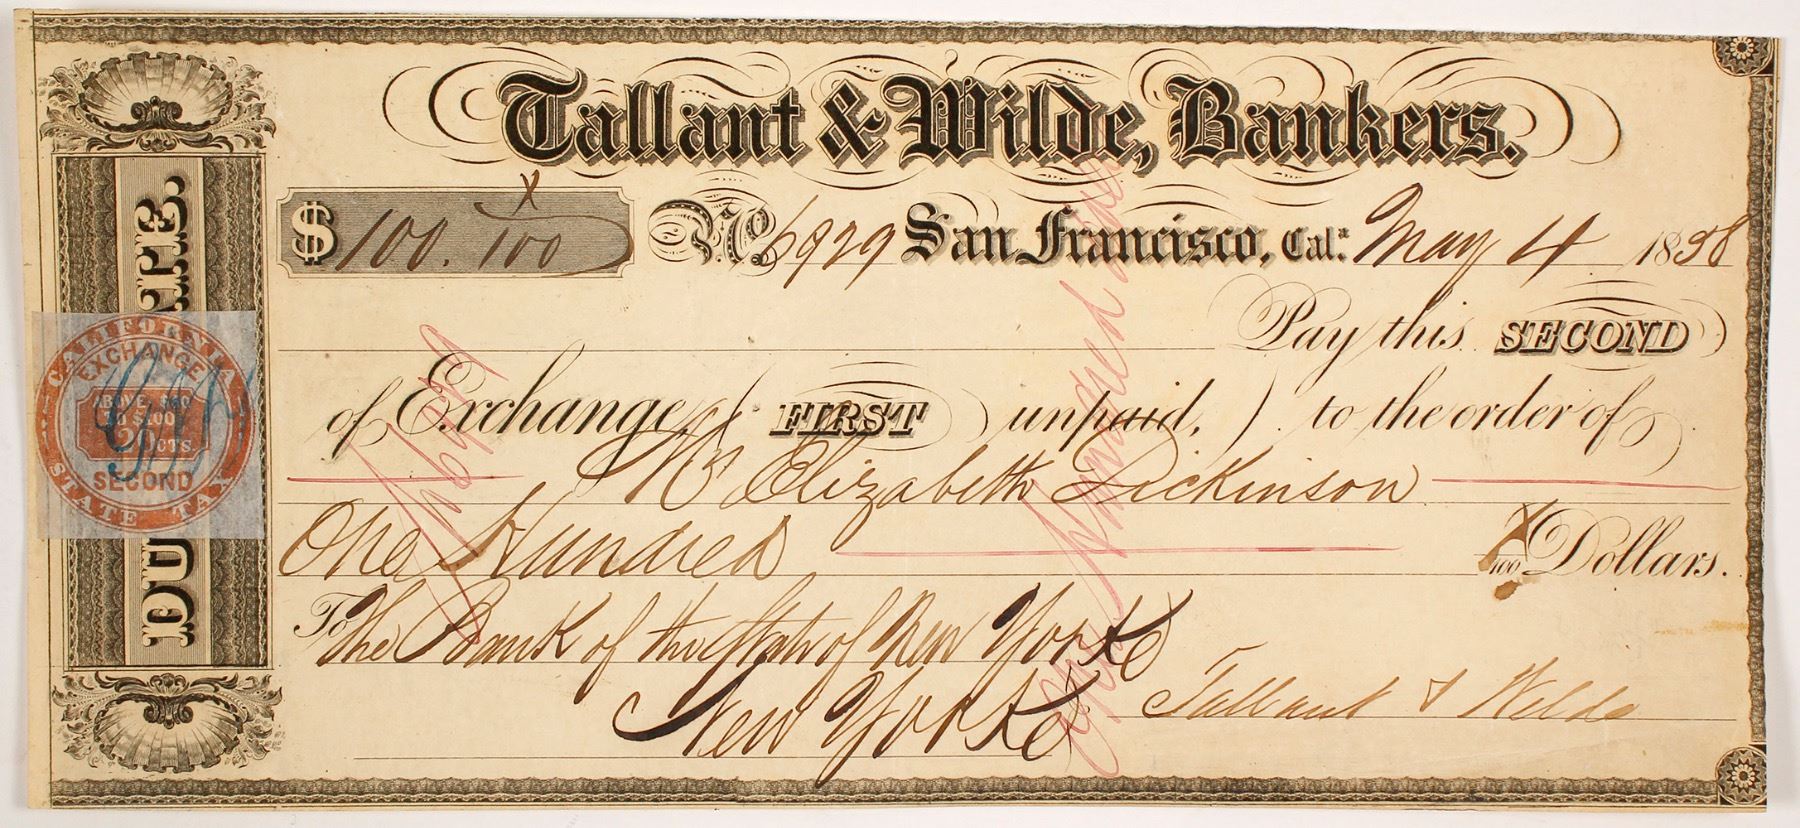 Tallant & Wilde, Bankers.
$ 100. x/100 No. 6929 San Francisco, Cal.ª May 4 1858
Pay this SECOND
of Exchange (FIRST unpaid,) to the order of
Mrs Elizabeth Dickinson
One Hundred x/100 Dollars.
To The Bank of the State of New York
New York Tallant & Wilde
DU TE.
CALIFORNIA
EXCHANGE
ABOVE $50
TO $100
20 CTS.
SECOND
STATE TAX